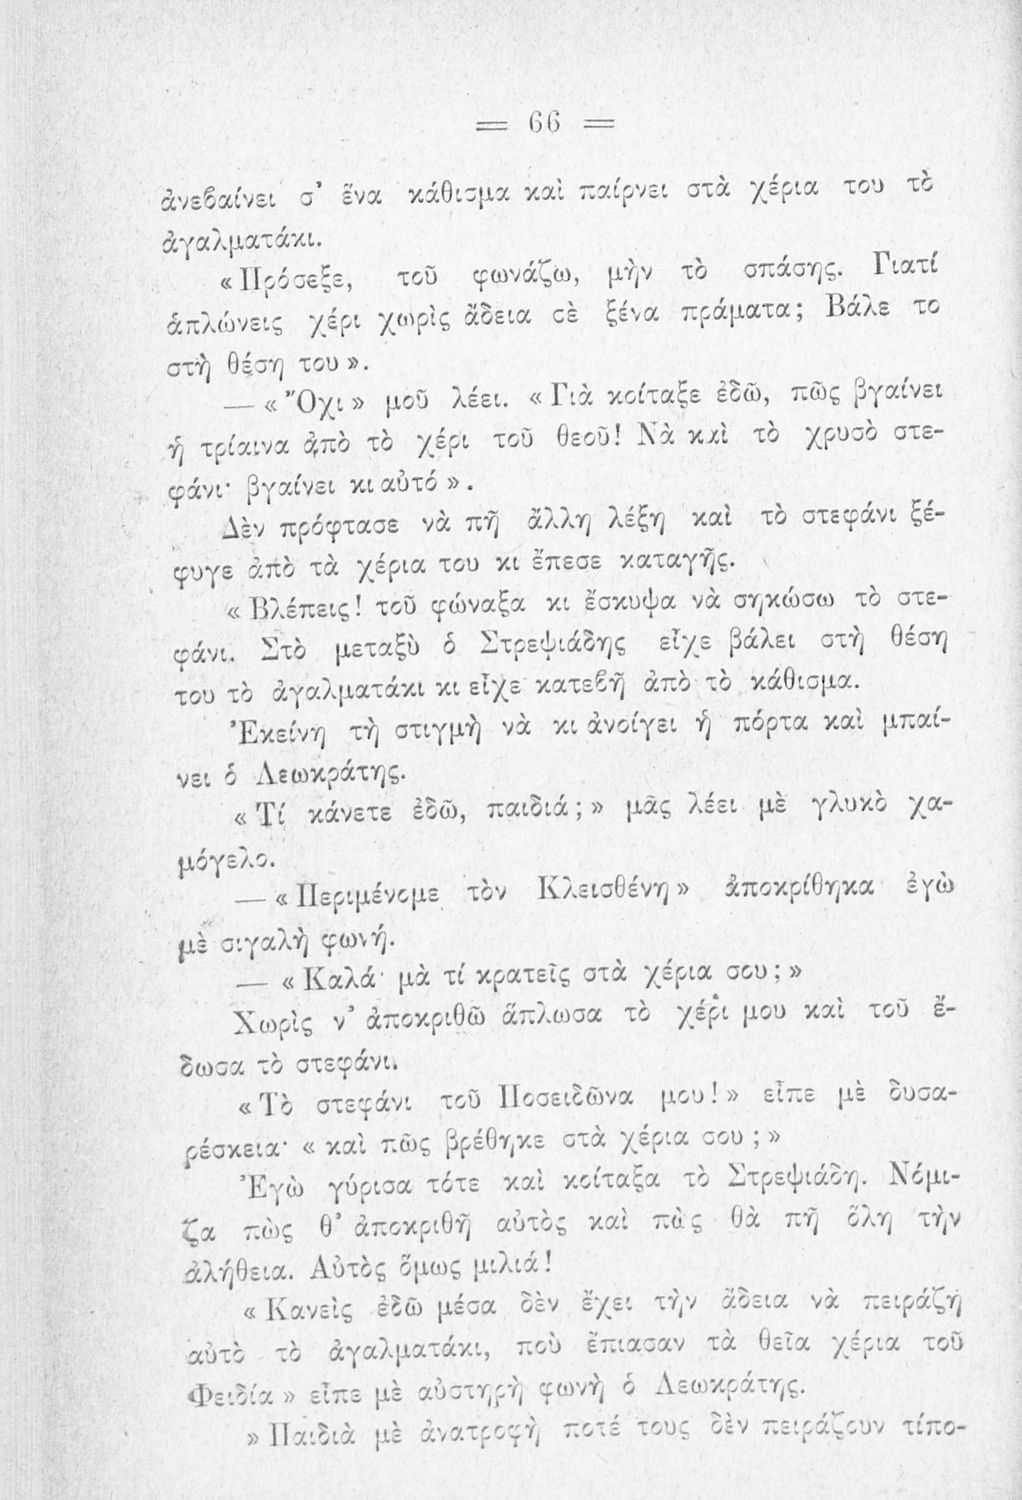 = 66 =
ἀνεβαίνει σ’ ἕνα κάθισμα καὶ παίρνει στὰ χέρια του τὸ
ἀγαλματάκι.
«Πρόσεξε, τοῦ φωνάζω, μὴν τὸ σπάσῃς. Γιατί
ἁπλώνεις χέρι χωρὶς ἄδεια σὲ ξένα πράματα; Βάλε το
στὴ θέση του».
— «Ὄχι» μοῦ λέει. «Γιὰ κοίταξε ἐδῶ, πῶς βγαίνει
ἡ τρίαινα ἀπὸ τὸ χέρι τοῦ θεοῦ! Νὰ καὶ τὸ χρυσὸ στε-
φάνι· βγαίνει κι αὐτό».
Δὲν πρόφτασε νὰ πῇ ἄλλη λέξη καὶ τὸ στεφάνι ξέ-
φυγε ἀπὸ τὰ χέρια του κι ἔπεσε καταγῆς.
«Βλέπεις! τοῦ φώναξα κι ἔσκυψα νὰ σηκώσω τὸ στε-
φάνι. Στὸ μεταξὺ ὁ Στρεψιάδης εἶχε βάλει στὴ θέση
του τὸ ἀγαλματάκι κι εἶχε κατεβῆ ἀπὸ τὸ κάθισμα.
Ἐκείνη τὴ στιγμὴ νὰ κι ἀνοίγει ἡ πόρτα καὶ μπαί-
νει ὁ Λεωκράτης.
«Τί κάνετε ἐδῶ, παιδιά;» μᾶς λέει μὲ γλυκὸ χα-
μόγελο.
— «Περιμένομε τὸν Κλεισθένη» ἀποκρίθηκα ἐγὼ
μὲ σιγαλὴ φωνή.
— «Καλά· μὰ τί κρατεῖς στὰ χέρια σου;»
Χωρὶς ν’ ἀποκριθῶ ἅπλωσα τὸ χέρι μου καὶ τοῦ ἔ-
δωσα τὸ στεφάνι.
«Τὸ στεφάνι τοῦ Ποσειδῶνα μου!» εἶπε μὲ δυσα-
ρέσκεια· «καὶ πῶς βρέθηκε στὰ χέρια σου;»
Ἐγὼ γύρισα τότε καὶ κοίταξα τὸ Στρεψιάδη. Νόμι-
ζα πὼς θ’ ἀποκριθῆ αὐτὸς καὶ πὼς θὰ πῆ ὅλη τὴν
ἀλήθεια. Αὐτὸς ὅμως μιλιά!
«Κανεὶς ἐδῶ μέσα δὲν ἔχει τὴν ἄδεια νὰ πειράζῃ
αὐτὸ τὸ ἀγαλματάκι, ποὺ ἔπιασαν τὰ θεῖα χέρια τοῦ
Φειδία» εἶπε μὲ αὐστηρὴ φωνὴ ὁ Λεωκράτης.
»Παιδιὰ μὲ ἀνατροφὴ ποτέ τους δὲν πειράζουν τίπο-